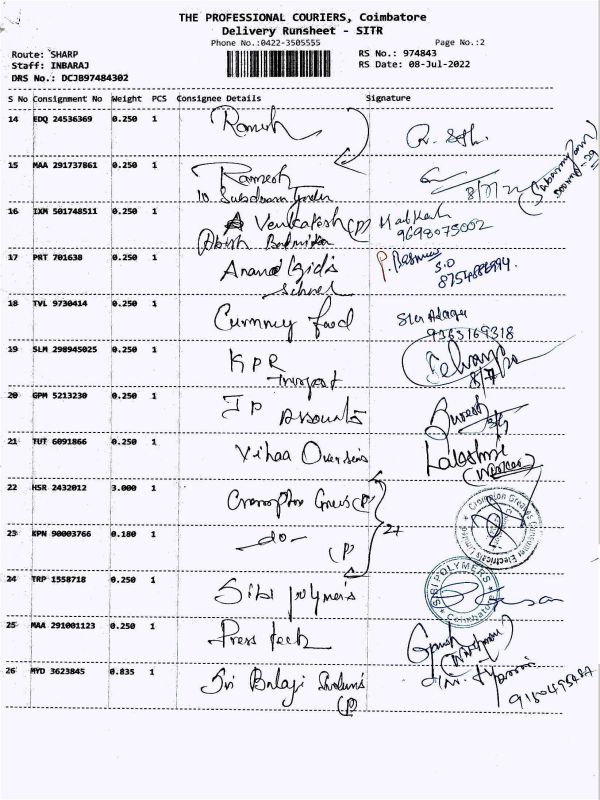 THE PROFESSIONAL COURIERS, Coimbatore
Delivery Runsheet - SITR
Phone No.:0422-3505555 Page No.:2
Route: SHARP RS No.: 974843
Staff: INBARAJ RS Date: 08-Jul-2022
DRS No.: DCJB97484302
S No Consignment No Weight PCS Consignee Details Signature
14 EDQ 24536369 0.250 1 Ramesh
15 MAA 291737861 0.250 1 Ramesh
8/7/22
16 IXM 501748511 0.250 1 A Venkatesh (P)
9698075002
17 PRT 701638 0.250 1 Anand
School
18 TVL 9730414 0.250 1 food
9363169318
19 SLM 298945025 0.250 1 KPR
8/7
20 GPM 5213230 0.250 1 JP Associates Suresh
21 TUT 6091866 0.250 1 Vihaa Overseas Lakshmi
22 HSR 2432012 3.000 1 Crompton Greaves (P)
Crompton Greaves Consumer Electricals Limited
23 KPN 90003766 0.180 1 -do-
(P) 2+
24 TRP 1558718 0.250 1 Sibi polymers
SIBI POLYMERS Coimbatore
25 MAA 291001123 0.250 1 Press tech
26 MYD 3623845 0.835 1 Sri Balaji
(P)